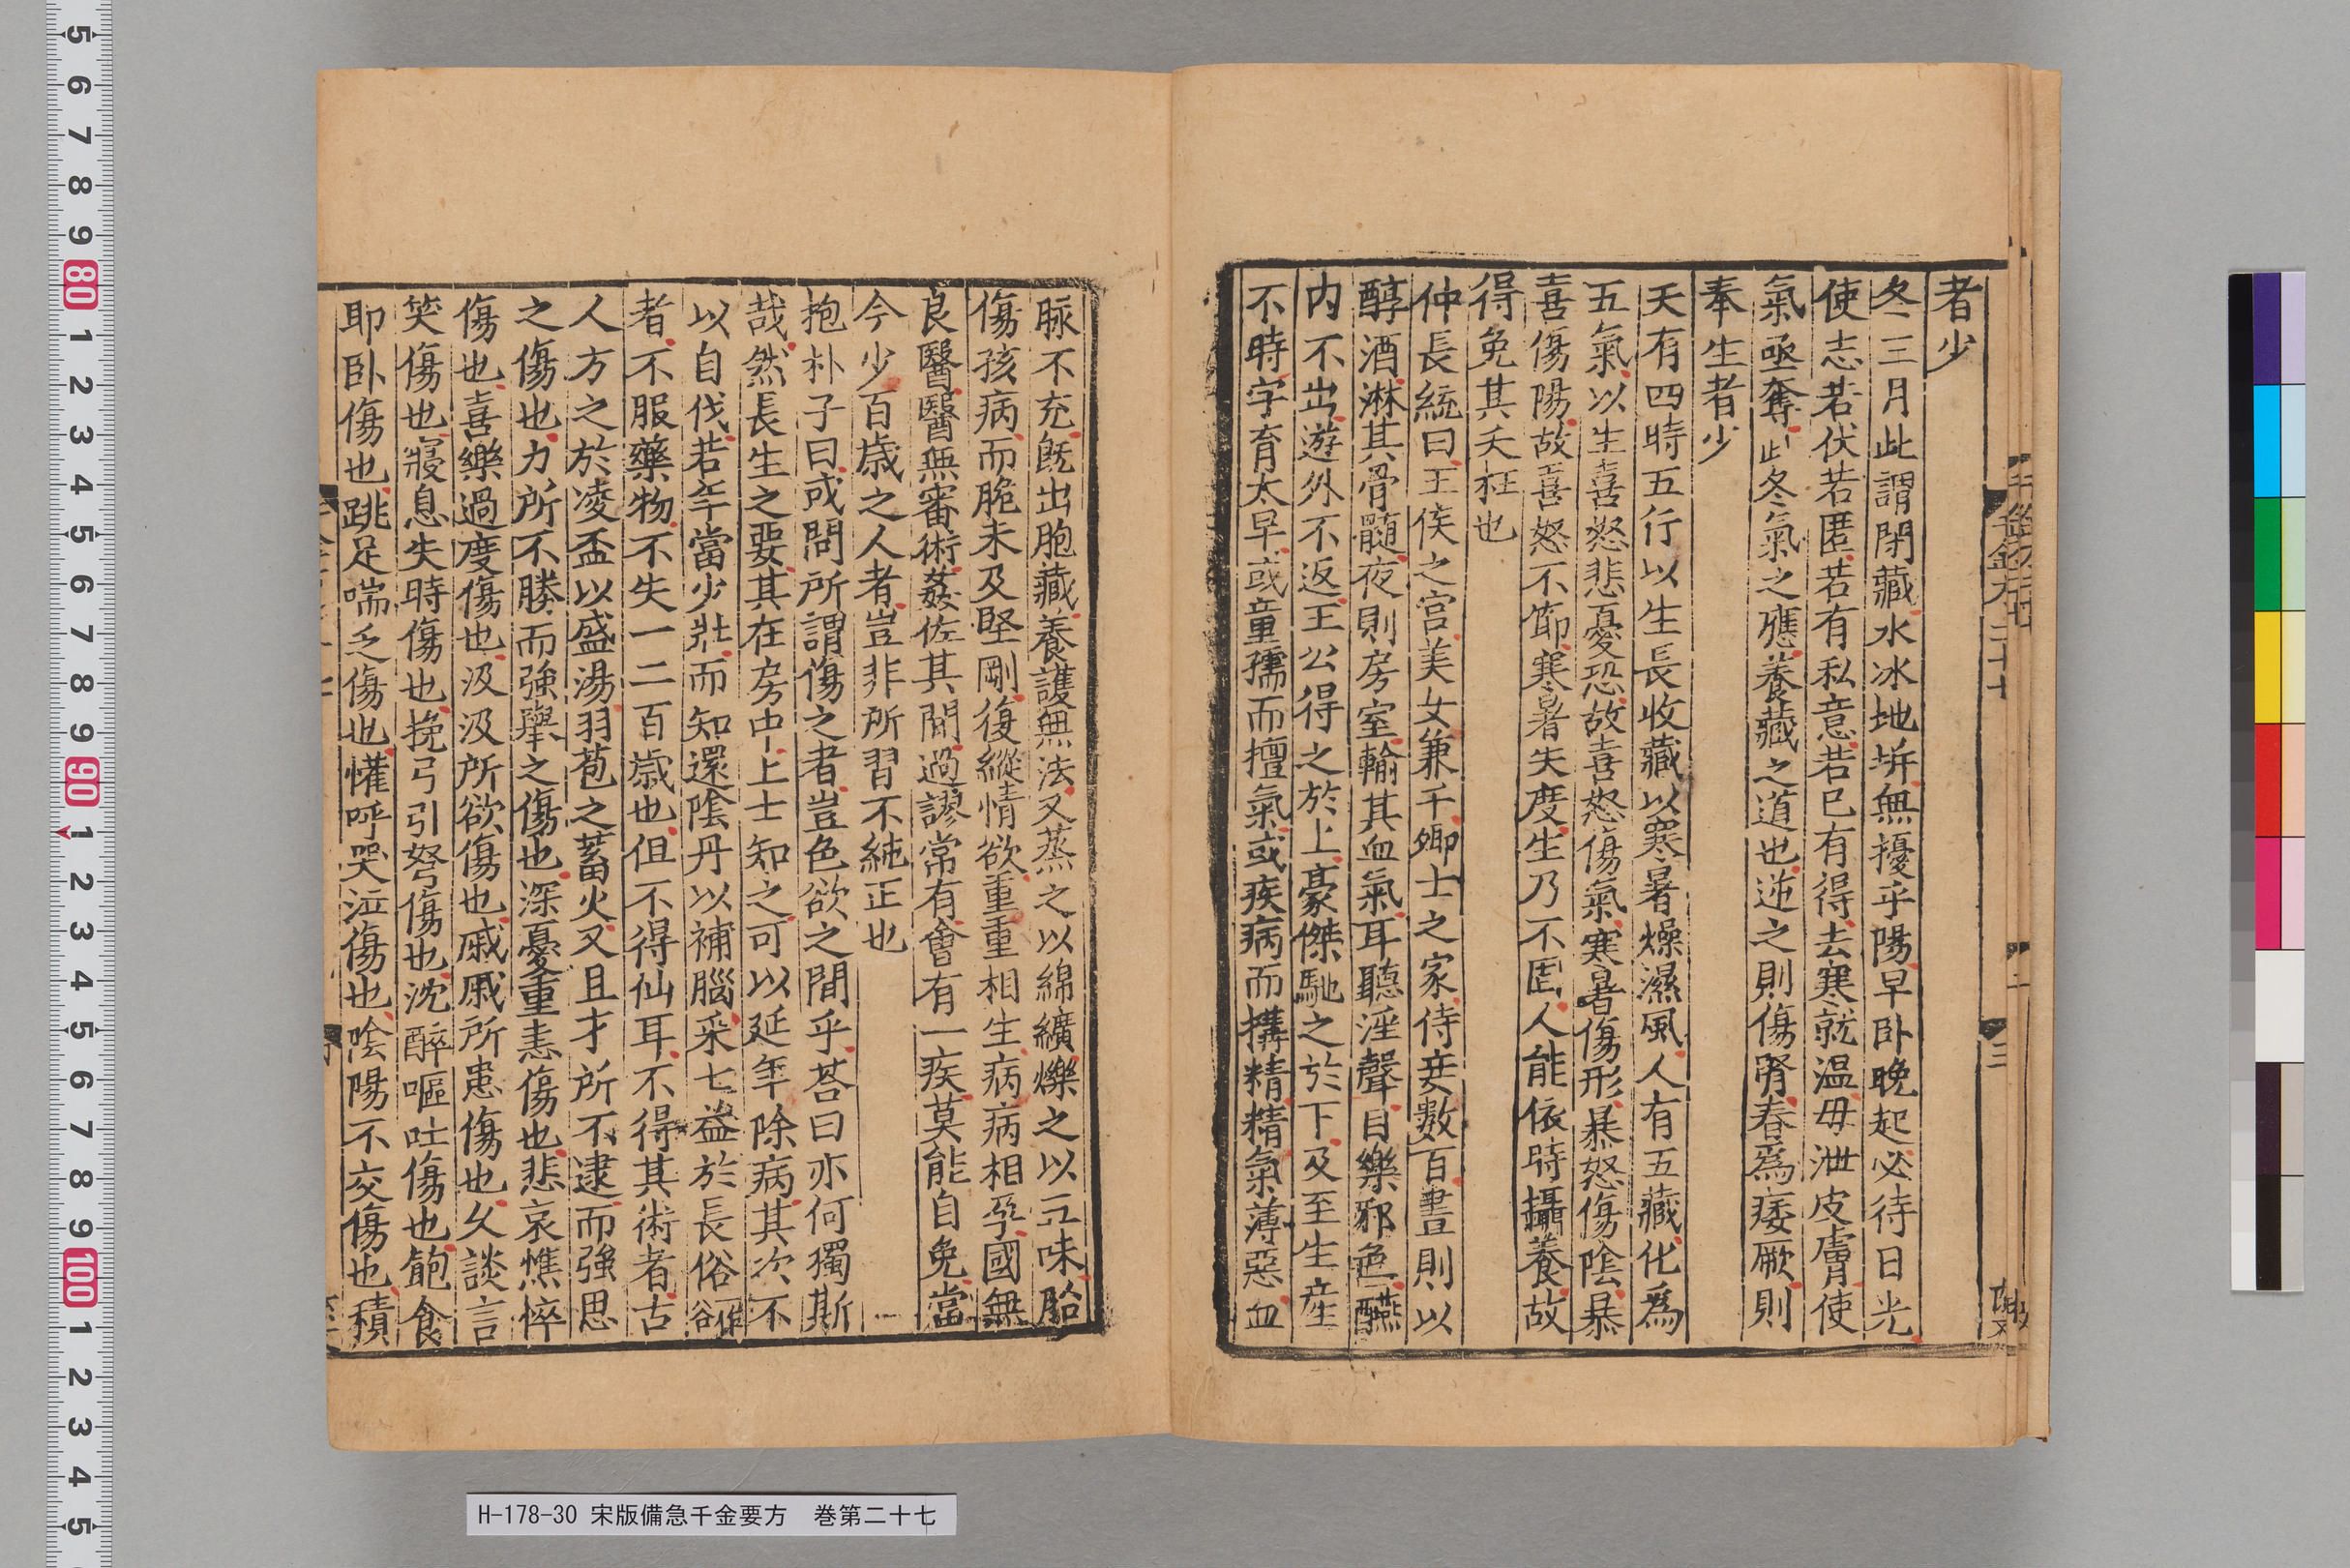 者少
冬三月此謂閉藏水冰地坼無擾乎陽早卧晚起必待日光
使志若伏若匿若有私意若已有得去寒就温毋泄皮膚使
氣亟奪此冬氣之應養藏之道也逆之則傷腎春爲痿厥則
奉生者少
天有四時五行以生長收藏以寒暑燥濕風人有五藏化爲
五氣以生喜怒悲憂恐故喜怒傷氣寒暑傷形暴怒傷陰暴
喜傷陽故喜怒不節寒暑失度生乃不固人能依時攝養故
得免其夭枉也
仲長統曰王侯之宫美女兼千卿士之家侍妾數百晝則以
醇酒淋其骨髓夜則房室輸其血氣耳聽淫聲目樂邪色醼
内不出遊外不返王公得之於上豪傑馳之於下及至生産
不時字育太早或童孺而擅氣或疾病而搆精精氣薄惡血
脉不充既出胞藏養護無法又蒸之以綿纊爍之以五味胎
傷孩病而脆未及堅剛復縱情欲重重相生病病相孕國無
良醫醫無審術姦佐其間過謬常有會有一疾莫能自免當
今少百歲之人者豈非所習不純正也
抱朴子曰或問所謂傷之者豈色欲之間乎荅曰亦何獨斯
哉然長生之要其在房中上士知之可以延年除病其次不
以自伐若年當少壯而知還陰丹以補腦采七益於長俗一作谷
者不服藥物不失一二百歲也但不得仙耳不得其術者古
人方之於凌盃以盛湯羽苞之蓄火又且才所不逮而強思
之傷也力所不勝而強舉之傷也深憂重恚傷也悲哀憔悴
傷也喜樂過度傷也汲汲所欲傷也戚戚所患傷也久談言
笑傷也寢息失時傷也挽弓引弩傷也沈醉嘔吐傷也飽食
即卧傷也跳足喘乏傷也懽呼哭泣傷也陰陽不交傷也積
千金方二十七
三
H-178-30 宋版備急千金要方　巻第二十七